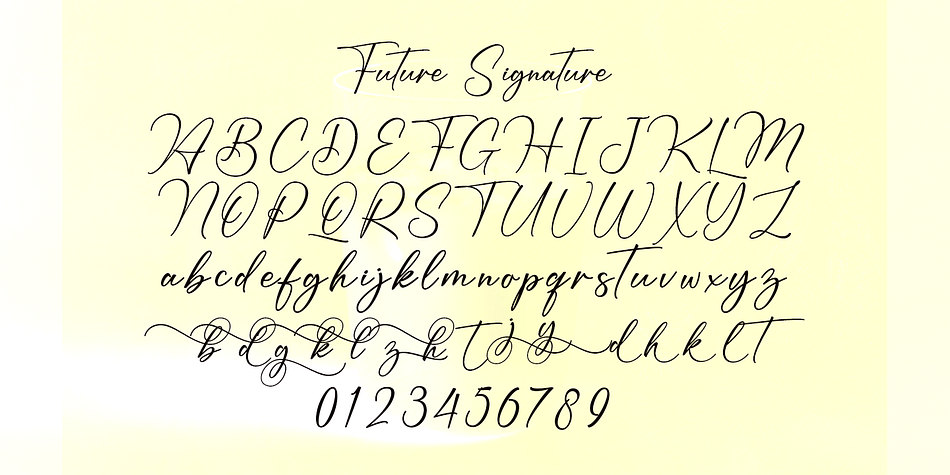 Future Signature
ABCDEFGHIJKLM
NOPQRSTUVWXYZ
abcdefghijklmnopqrstuvwxyz
b d g k l z h t j y d h k l t
0123456789